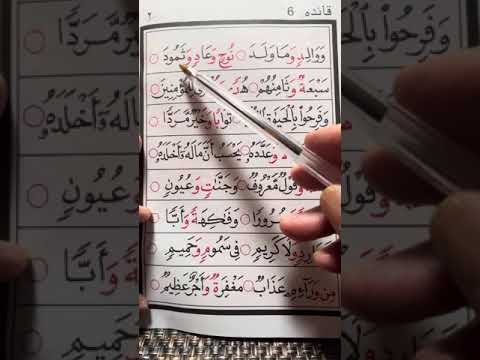 قائده 6 ٢
وَوَالِدٍ وَّمَا وَلَدَ نُوْحٍ وَّعَادٍ وَّثَمُوْدَ
سَبْعَةٌ وَّثَامِنُهُمْ
وَفَرِحُوْا بِالْحَيٰوةِ ثَوَابًا وَّخَيْرٌ مَّرَدًّا
وَّعَدَّدَهٗ يَحْسَبُ اَنَّ مَالَهٗۤ اَخْلَدَهٗ
وَّقَوْلٌ مَّعْرُوْفٌ وَجَنّٰتٍ وَّعُيُوْنٍ
وَفَكِهَةً وَّاَبًّا
وَّلَا كَرِيْمٍ فِيْ سَمُوْمٍ وَّحَمِيْمٍ
مِنْ وَّرَآءِهٖ عَذَابٌ مَغْفِرَةٌ وَّاَجْرٌ عَظِيْمٌ